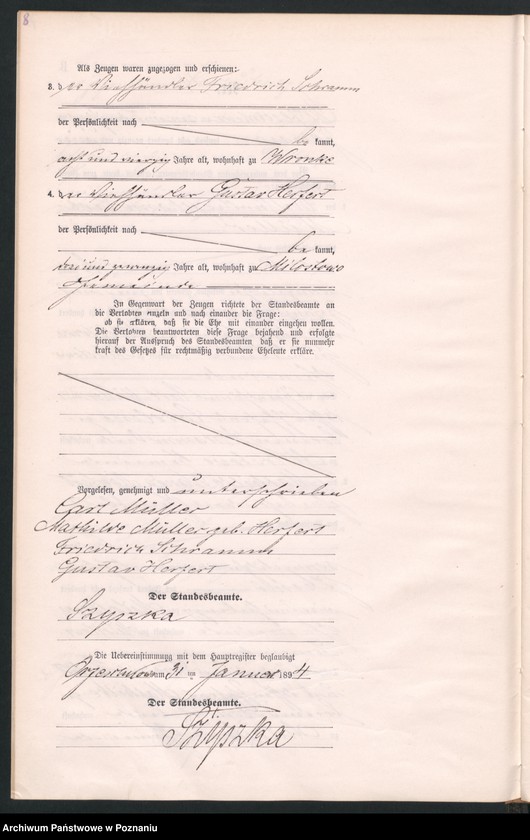 8
Als Zeugen waren zugezogen und erschienen:
3. der Viehhändler Friedrich Schramm
der Persönlichkeit nach
bekannt,
acht und vierzig Jahre alt, wohnhaft zu Wronke
4. der Viehhändler Gustav Herfert
der Persönlichkeit nach
bekannt,
drei und zwanzig Jahre alt, wohnhaft zu Milostowo
Gemeinde
In Gegenwart der Zeugen richtete der Standesbeamte an
die Verlobten einzeln und nach einander die Frage:
ob sie erklären, daß sie die Ehe mit einander eingehen wollen.
Die Verlobten beantworteten diese Frage bejahend und erfolgte
hierauf der Ausspruch des Standesbeamten, daß er sie nunmehr
kraft des Gesetzes für rechtmäßig verbundene Eheleute erkläre.
Vorgelesen, genehmigt und unterschrieben
Carl Müller
Mathilde Müller geb. Herfert
Friedrich Schramm
Gustav Herfert
Der Standesbeamte.
Szypzka
Die Uebereinstimmung mit dem Hauptregister beglaubigt
am 31 ten Januar 1894
Der Standesbeamte.
Szypzka
Archiwum Państwowe w Poznaniu